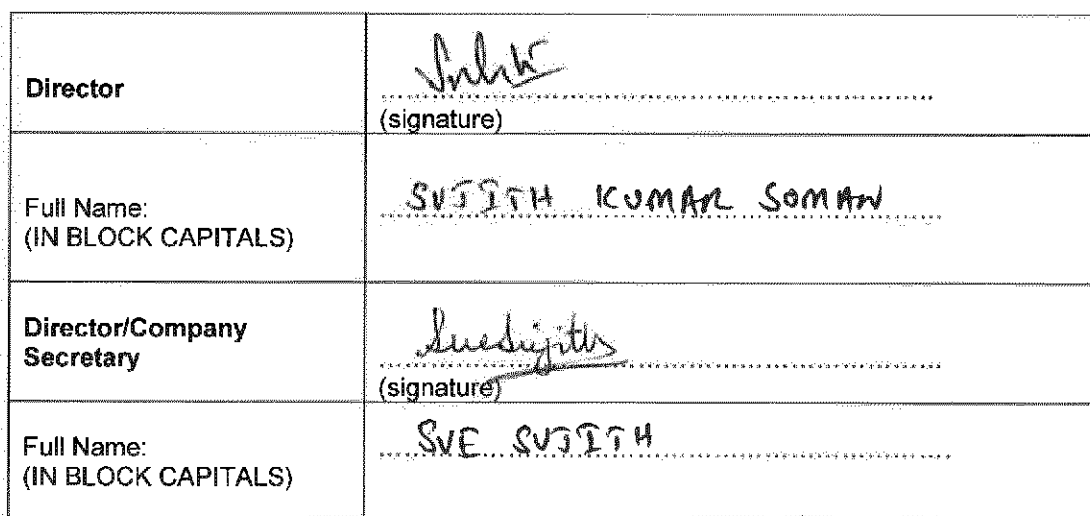 Director
(signature)
Full Name:
(IN BLOCK CAPITALS)
SUJITH KUMAR SOMAN
Director/Company
Secretary
SueSujith
(signature)
Full Name:
(IN BLOCK CAPITALS)
SUE SUJITH